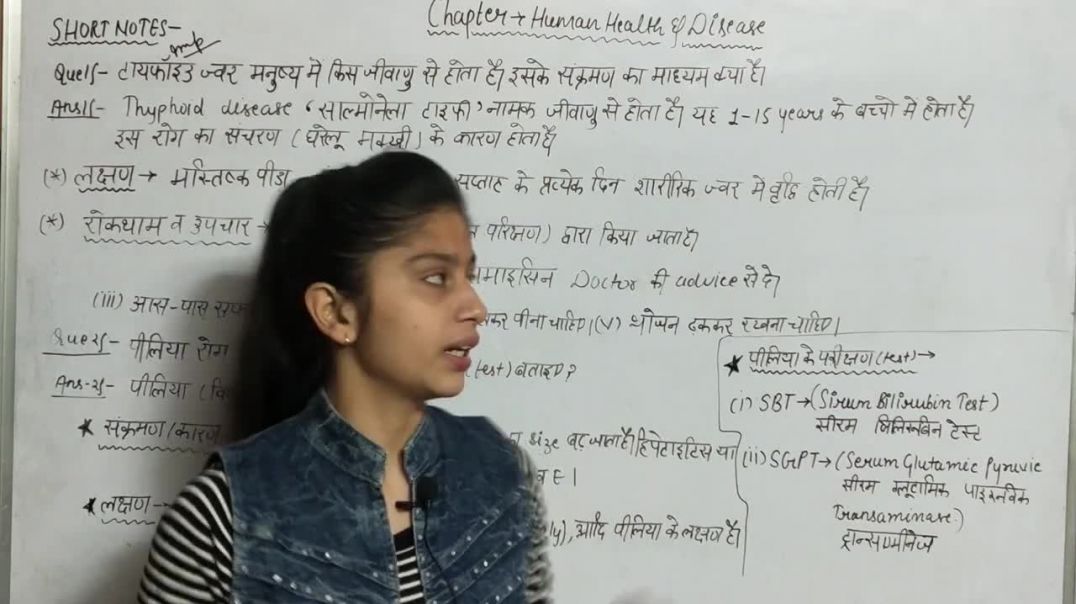 Chapter → Human Health & Disease
SHORT NOTES-
imp
Que1- टायफॉइड ज्वर मनुष्य में किस जीवाणु से होता है। इसके संक्रमण का माध्यम क्या है।
Ans1- Thyphoid disease 'साल्मोनेला टाइफी' नामक जीवाणु से होता है। यह 1-15 years के बच्चो में होता है।
इस रोग का संचरण (घरेलू मक्खी) के कारण होता है
(*) लक्षण → मस्तिष्क पीडा सप्ताह के प्रत्येक दिन शारीरिक ज्वर में वृद्धि होती है।
(*) रोकथाम व उपचार → परिक्षण) द्वारा किया जाता है।
माइसिन Doctor की advice से दे।
(iii) आस-पास कर पीना चाहिए। (v) भोजन ढ़ककर रखना चाहिए।
Que2- पीलिया रोग (test) बताइए?
Ans-2- पीलिया
★ संक्रमण/कारण size बढ़ जाता है। हिपेटाइटिस या
व E।
★ लक्षण- आदि पीलिया के लक्षण है।
★ पीलिया के परीक्षण (test) →
(i) SBT → (Sirum Bilirubin Test)
सीरम बिलिरूबिन टेस्ट
(ii) SGPT → (Serum Glutamic Pyruvic
सीरम ग्लूटामिक पाइरूविक
Transaminase)
ट्रान्सएमीनेज